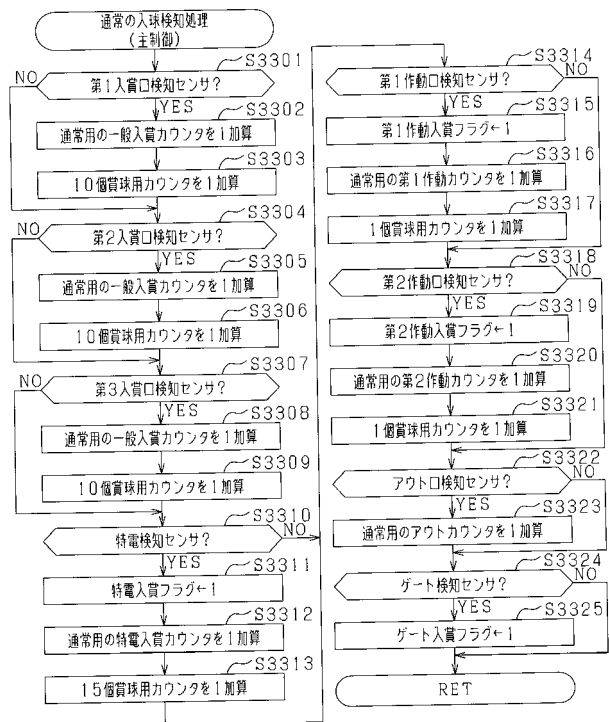 通常の入球検知処理
(主制御)
S3301
第1入賞口検知センサ?
NO
YES
S3302
通常用の一般入賞カウンタを1加算
S3303
10個賞球用カウンタを1加算
S3304
第2入賞口検知センサ?
NO
YES
S3305
通常用の一般入賞カウンタを1加算
S3306
10個賞球用カウンタを1加算
S3307
第3入賞口検知センサ?
NO
YES
S3308
通常用の一般入賞カウンタを1加算
S3309
10個賞球用カウンタを1加算
S3310
特電検知センサ?
NO
YES
S3311
特電入賞フラグ←1
S3312
通常用の特電入賞カウンタを1加算
S3313
15個賞球用カウンタを1加算
S3314
第1作動口検知センサ?
NO
YES
S3315
第1作動入賞フラグ←1
S3316
通常用の第1作動カウンタを1加算
S3317
1個賞球用カウンタを1加算
S3318
第2作動口検知センサ?
NO
YES
S3319
第2作動入賞フラグ←1
S3320
通常用の第2作動カウンタを1加算
S3321
1個賞球用カウンタを1加算
S3322
アウト口検知センサ?
NO
YES
S3323
通常用のアウトカウンタを1加算
S3324
ゲート検知センサ?
NO
YES
S3325
ゲート入賞フラグ←1
RET